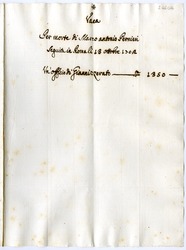 Vaca
Per morte di Marco Antonio
Seguita in Roma li 18 ottobre
Un' offitio di Giannizzerato — ∇ 1350 —